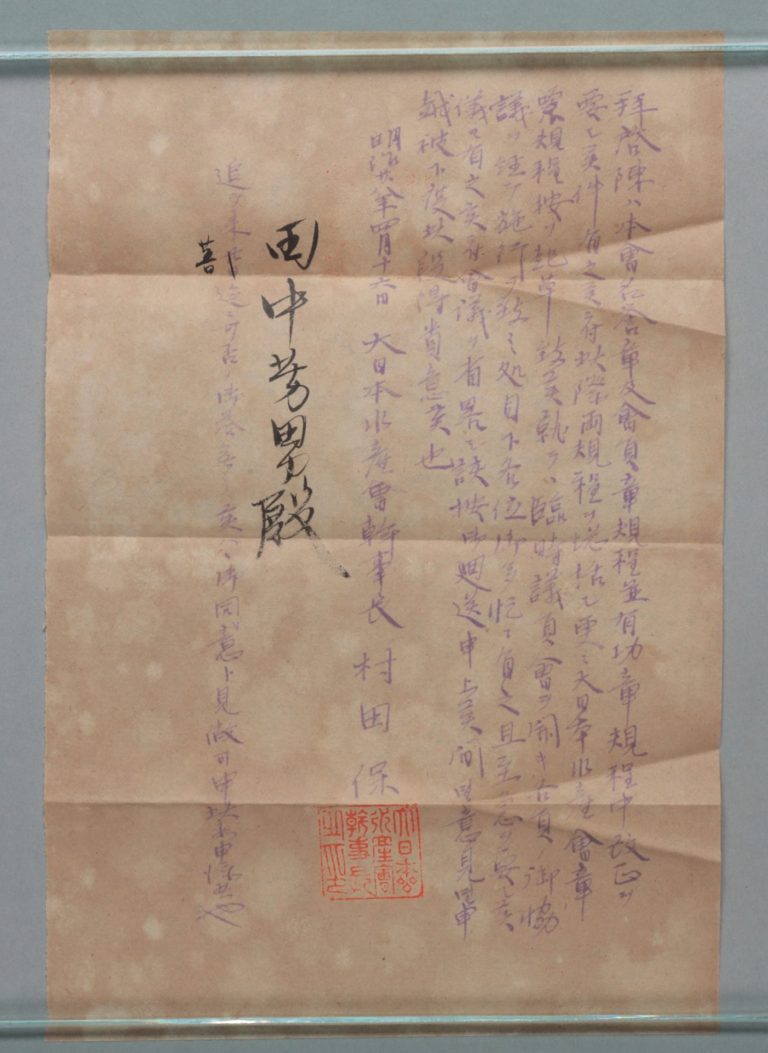 拝啓陳ハ本會名誉章及會員章規程並有功章規程中改正ヲ
要シ候件有之候ニ付此際両規程ヲ総括シ更ニ大日本水産會章
規程按ヲ起草致候就テハ臨時議員會ヲ開キ各員ノ御協
議ヲ経テ施行可致之処目下各位御多忙之
儀モ有之候ニ付會議ヲ省畧シ該按御廻送申上候間御意見御申
越被下度此段得貴意候也
明治廿八年四月十六日 大日本水産會幹事長 村田保
田中芳男殿
追テ来
御答無之候ハ、御同意ト見做可申此如申添候也
大日本水産會幹事長之印